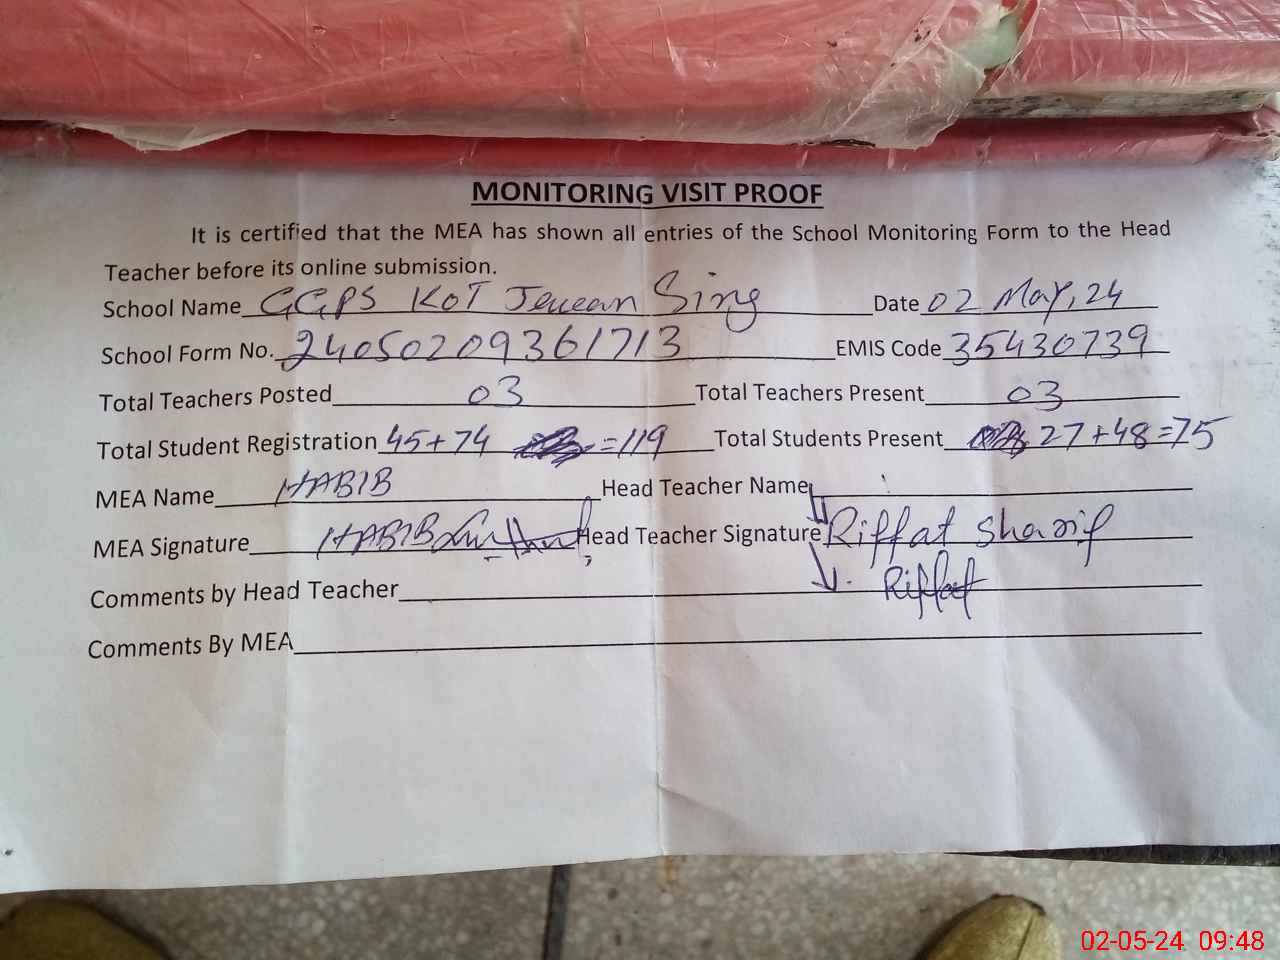 MONITORING VISIT PROOF
It is certified that the MEA has shown all entries of the School Monitoring Form to the Head
Teacher before its online submission.
School Name GGPS KOT Sing Date 02 May, 24
School Form No. 24050209361713 EMIS Code 35430739
Total Teachers Posted 03 Total Teachers Present 03
Total Student Registration 45+74 =119 Total Students Present 27+48=75
MEA Name HABIB Head Teacher Name
MEA Signature HABIB Head Teacher Signature Riffat Sharif
Comments by Head Teacher Riffat
Comments By MEA
02-05-24 09:48